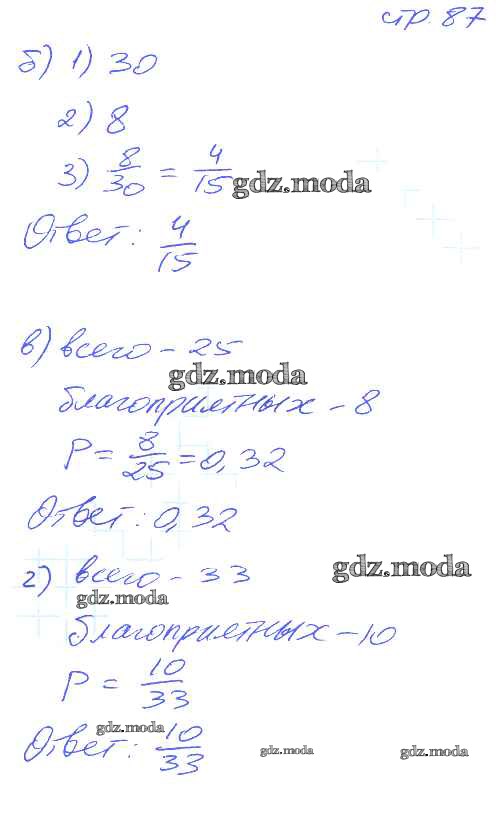 стр. 87
б) 1) 30
2) 8
3) 8/30 = 4/15 gdz.moda
Ответ: 4/15
в) всего - 25
gdz.moda
благоприятных - 8
P = 8/25 = 0,32
Ответ: 0,32
г) всего - 33 gdz.moda
gdz.moda
благоприятных - 10
P = 10/33
gdz.moda
Ответ: 10/33 gdz.moda gdz.moda